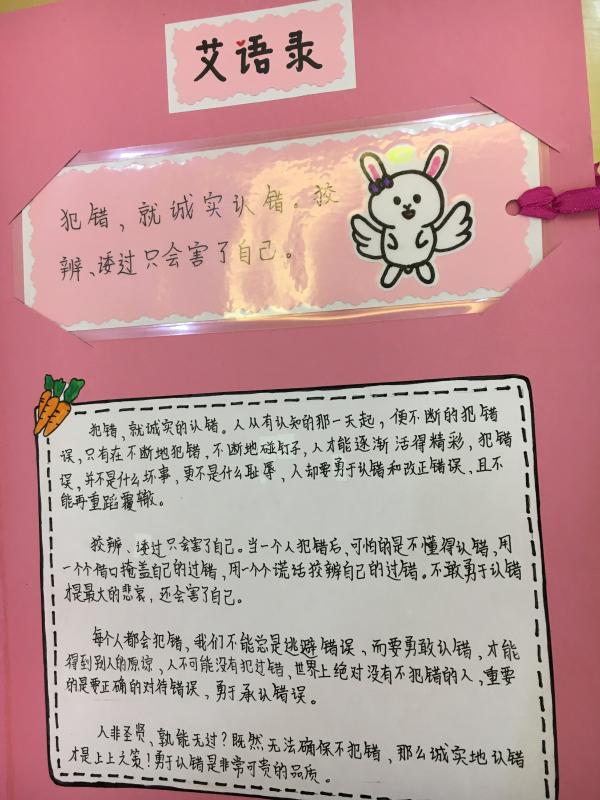 艾语录
犯错，就诚实认错。狡
辨、诿过只会害了自己。
犯错，就诚实的认错。人从有认知的那一天起，便不断的犯错
误，只有在不断地犯错，不断地碰钉子，人才能逐渐活得精彩，犯错
误，并不是什么坏事，更不是什么耻辱，人却要勇于认错和改正错误、且不
能再重蹈覆辙。
狡辨、诿过只会害了自己。当一个人犯错后、可怕的是不懂得认错，用
一个个借口掩盖自己的过错，用一个个谎话狡辨自己的过错。不敢勇于认错
才是最大的悲哀，还会害了自己。
每个人都会犯错，我们不能总是逃避错误，而要勇敢认错，才能
得到别人的原谅，人不可能没有犯过错，世界上绝对没有不犯错的人，重要
的是要正确的对待错误，勇于承认错误。
人非圣贤、孰能无过？既然无法确保不犯错，那么诚实地认错
才是上上之策！勇于认错是非常可贵的品质。